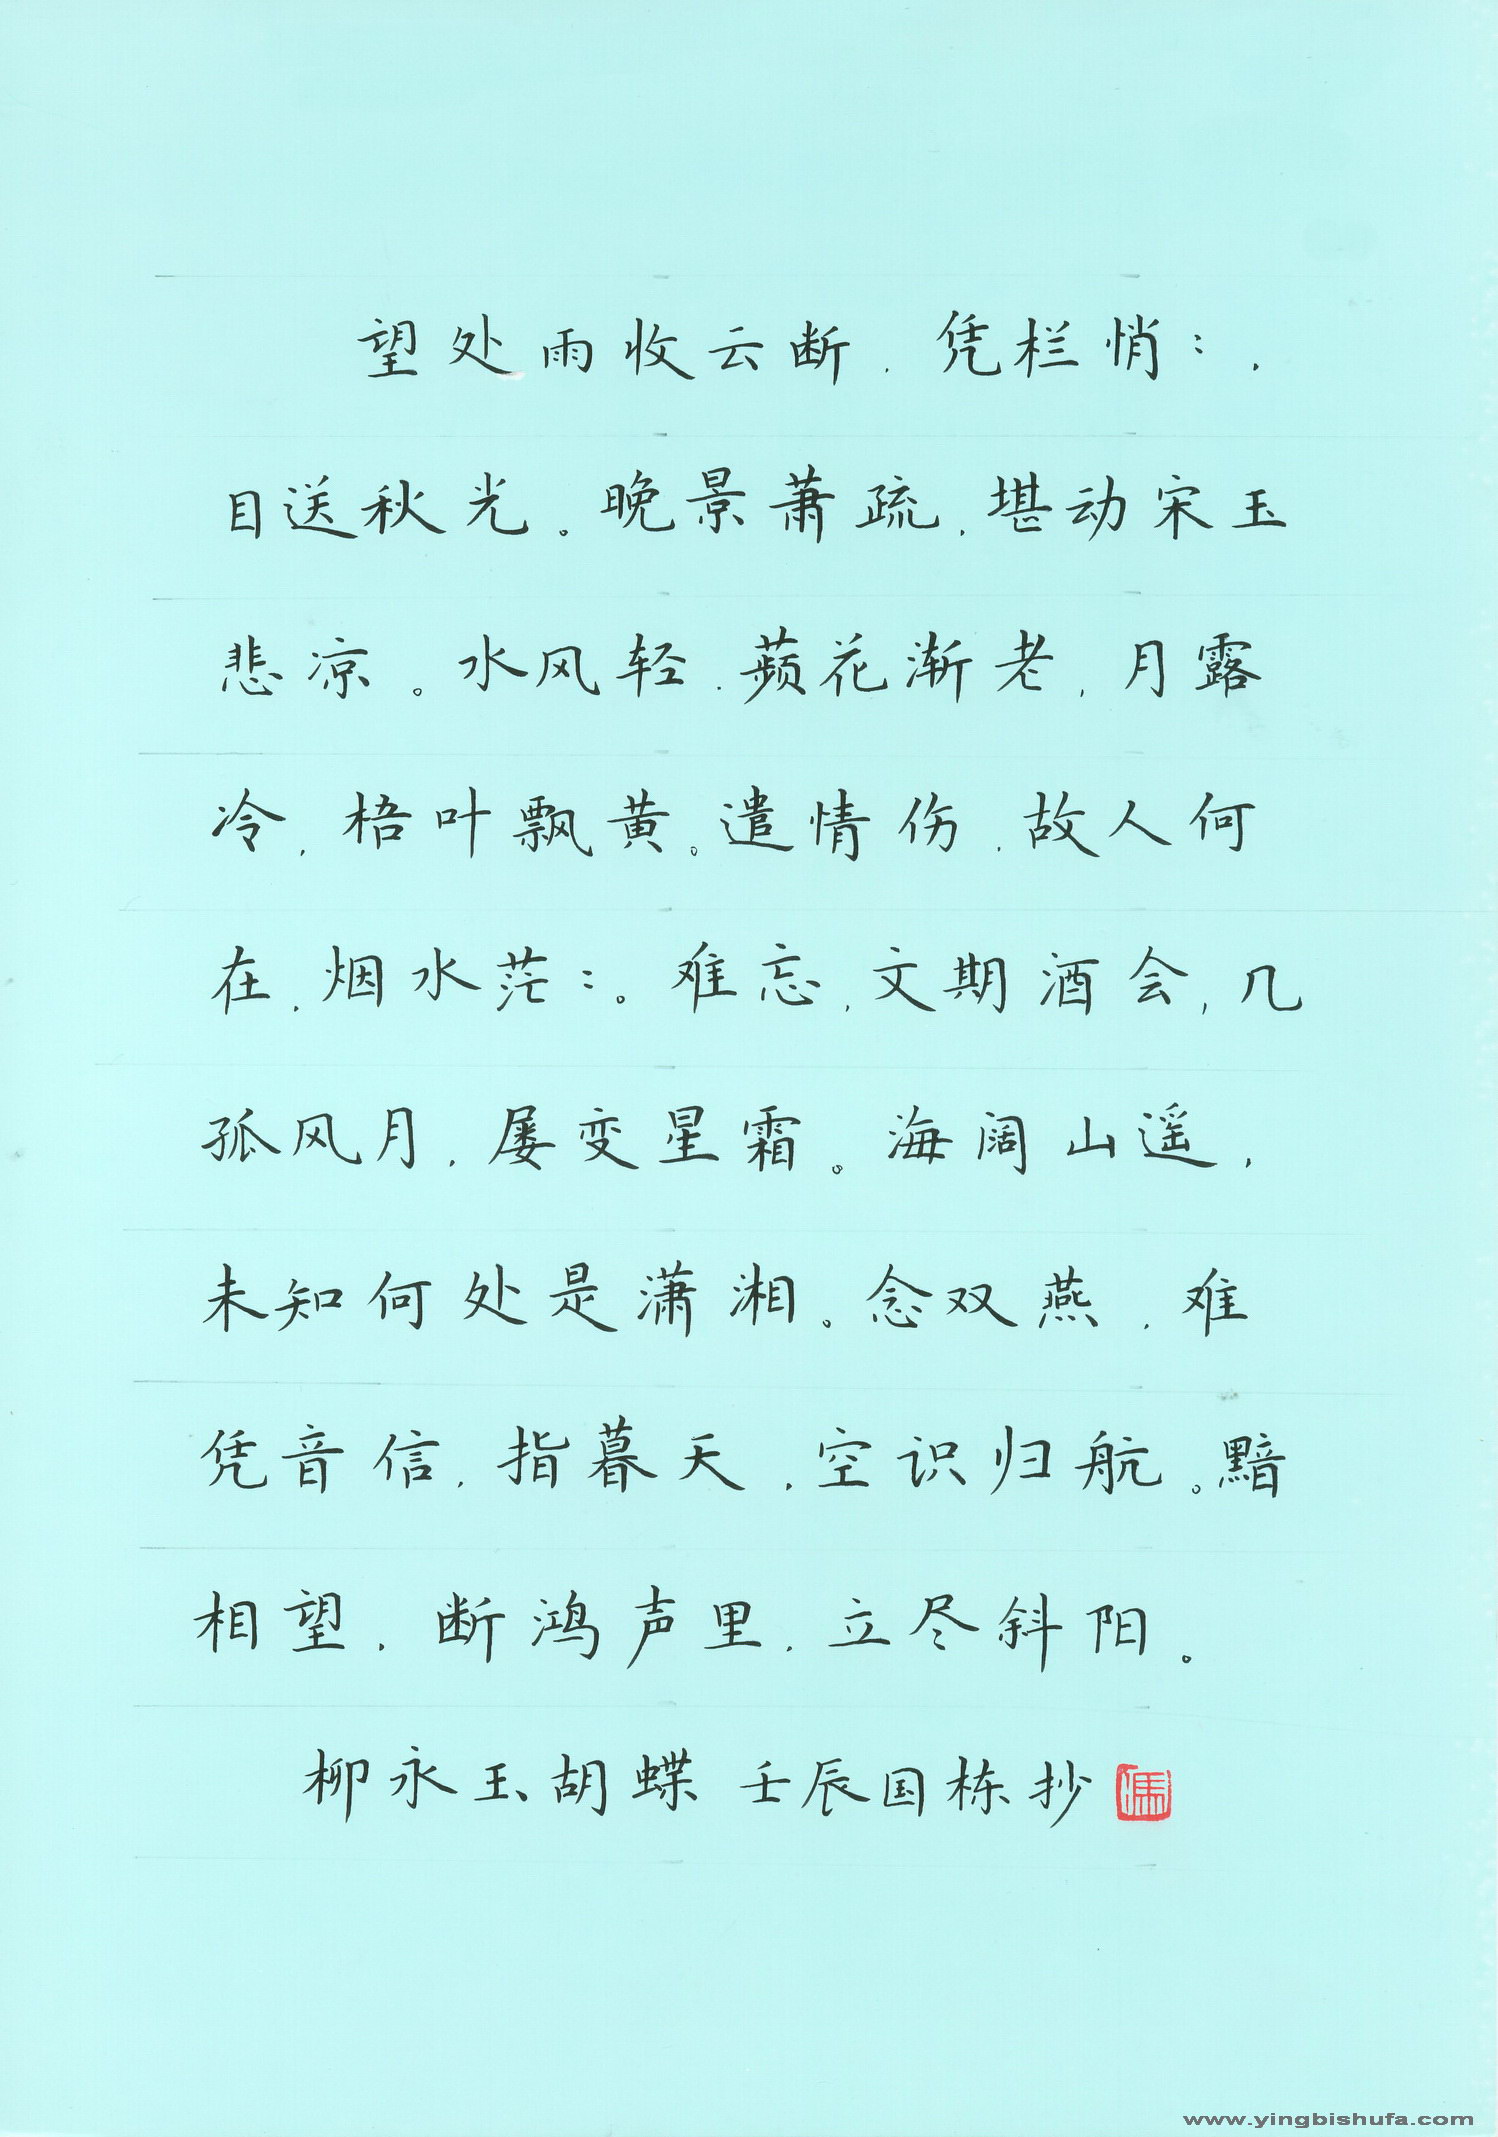 望处雨收云断,凭栏悄：,
目送秋光。晚景萧疏,堪动宋玉
悲凉。水风轻,蘋花渐老,月露
冷,梧叶飘黄。遣情伤,故人何
在,烟水茫：。难忘,文期酒会,几
孤风月,屡变星霜。海阔山遥,
未知何处是潇湘。念双燕,难
凭音信,指暮天,空识归航。黯
相望,断鸿声里,立尽斜阳。
柳永玉胡蝶 壬辰国栋抄
www.yingbishufa.com